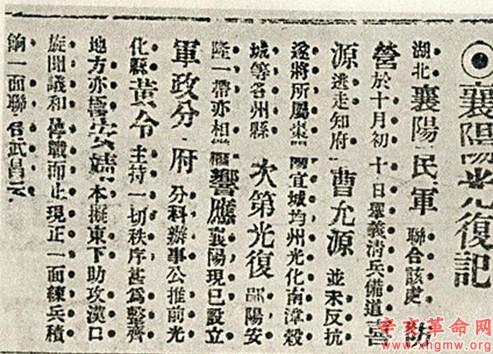 ◉襄陽光復記
湖北襄陽民軍聯合該處防
營於十月初十日舉義清兵備道喜
源逃走知府曹允源並未反抗
遂將所屬棗陽宜城均州光化南漳穀
城等各州縣次第光復鄖陽安
隆一帶亦相繼響應襄陽現已設立
軍政分府分科辦事公推前光
化縣黃令主持一切秩序甚爲整齊
地方亦極安靖本擬東下助攻漢口
旋聞議和停戰而止現正一面練兵積
餉一面聯合武昌云
辛亥革命网
www.xhgmw.org